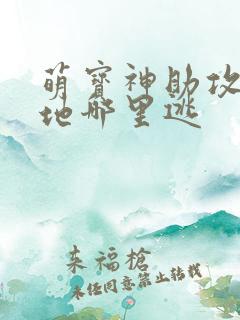 萌宝神助攻
地哪里逃
来福枪
未经同意禁止转载